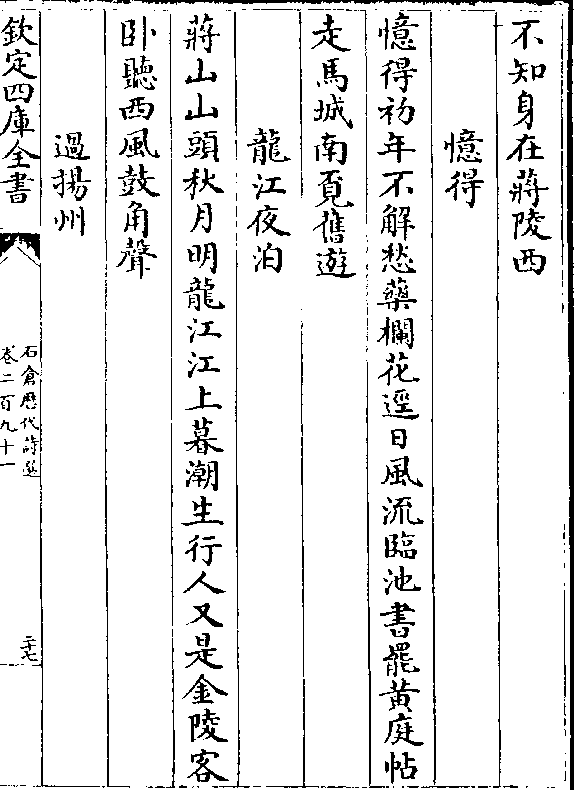 不知身在蔣陵西
憶得
憶得初年不解愁藥欄花逕日風流臨池書罷黄庭帖
走馬城南覔舊遊
龍江夜泊
蔣山山頭秋月明龍江江上暮潮生行人又是金陵客
卧聽西風鼓角聲
過揚州
欽定四庫全書
石倉歴代詩選
卷二百九十一
二十七